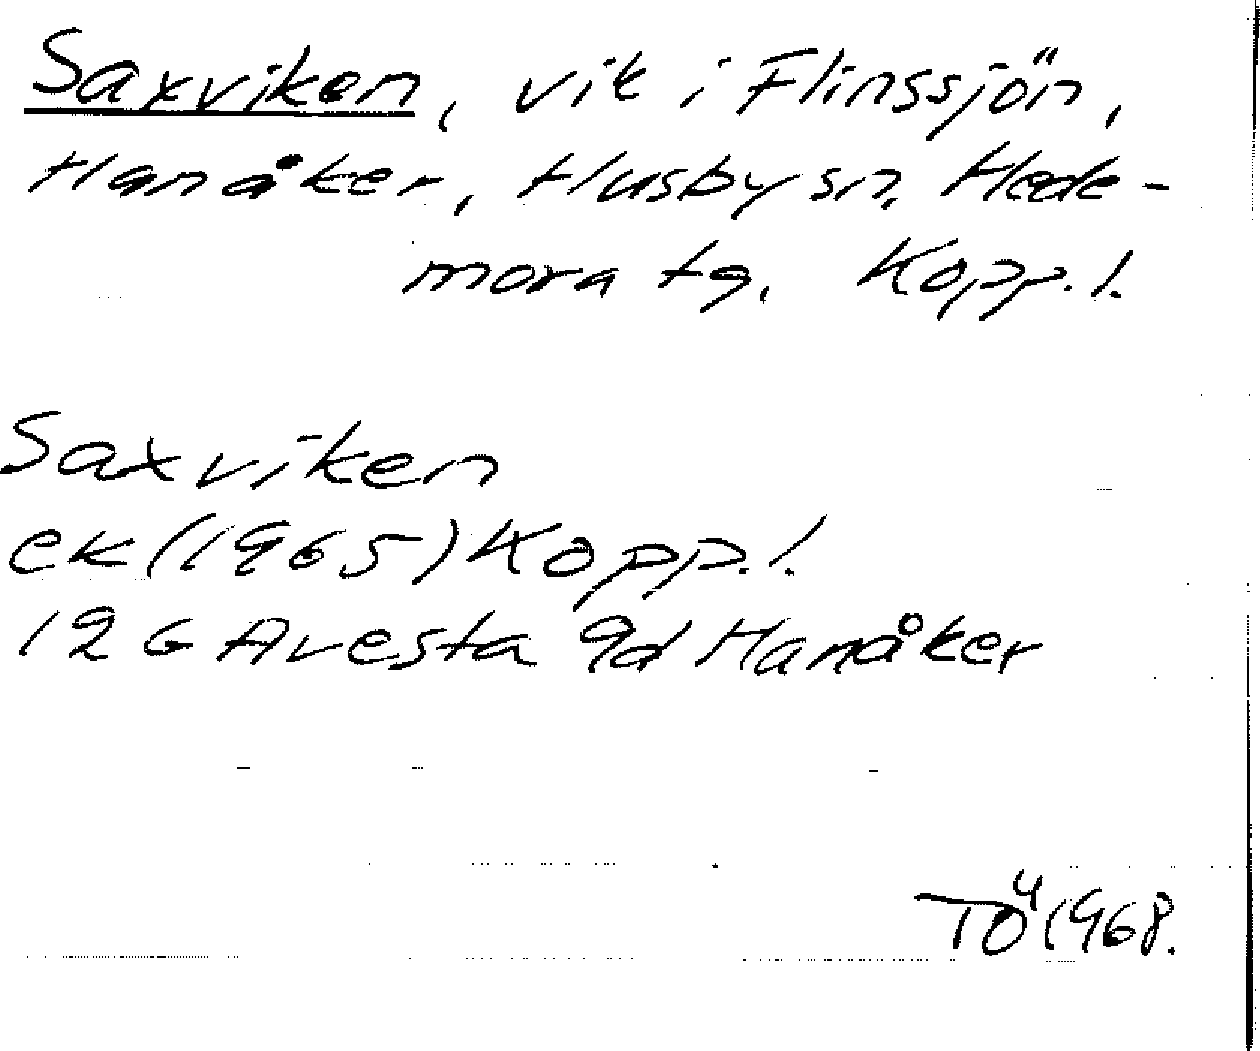 Saxviken, vik i Flinssjön,
Hanåker, Husby sn, Hede-
mora tg, Kopp.l.
Saxviken
ek (1965) Kopp.l.
12 G Avesta 9d Hanåker
TÖ 1968.